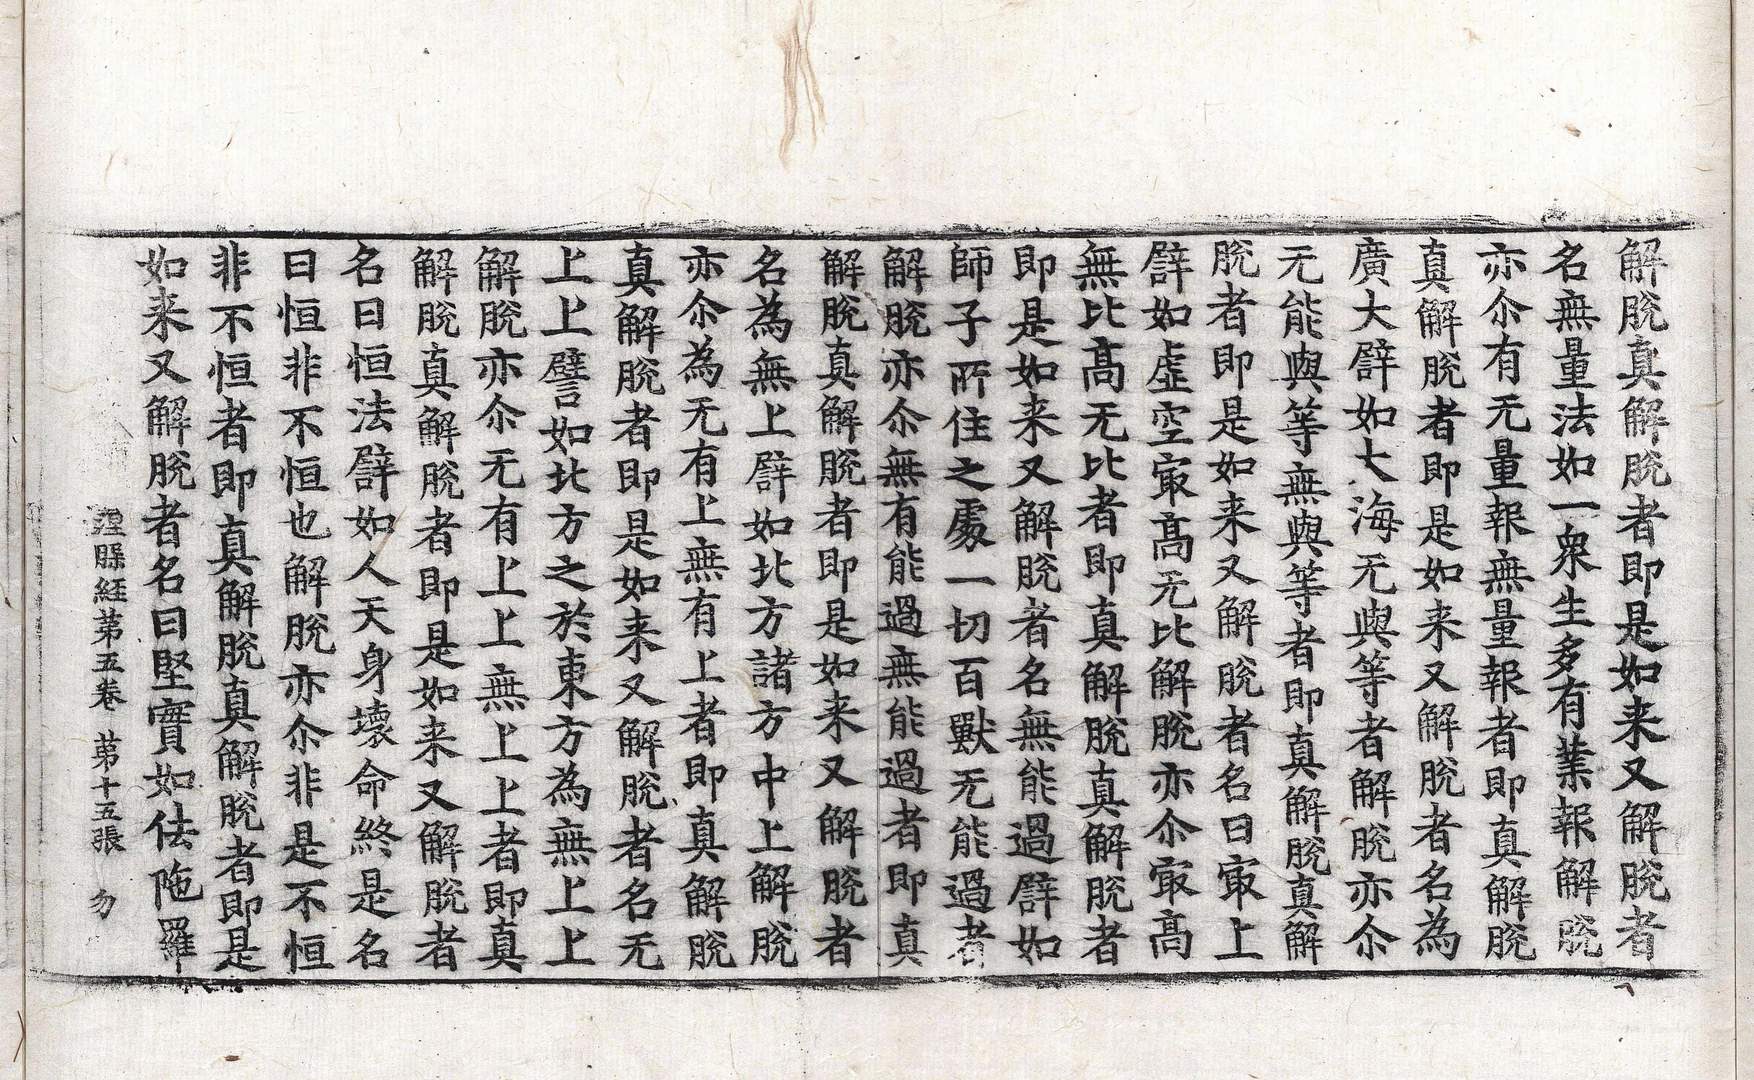 解脫真解脫者即是如来又解脫者
名無量法如一衆生多有業報解脫
亦尒有无量報無量報者即真解脫
真解脫者即是如来又解脫者名為
廣大譬如大海无與等者解脫亦尒
无能與等無與等者即真解脫真解
脫者即是如来又解脫者名曰㝡上
譬如虛空㝡髙无比解脫亦尒㝡髙
無比髙无比者即真解脫真解脫者
即是如来又解脫者名無能過譬如
師子所住之處一切百獸无能過者
解脫亦尒無有能過無能過者即真
解脫真解脫者即是如来又解脫者
名為無上譬如北方諸方中上解脫
亦尒為无有上無有上者即真解脫
真解脫者即是如来又解脫者名无
上上譬如北方之於東方為無上上
解脫亦尒无有上上無上上者即真
解脫真解脫者即是如来又解脫者
名曰恒法譬如人天身壞命終是名
曰恒非不恒也解脫亦尒非是不恒
非不恒者即真解脫真解脫者即是
如来又解脫者名曰堅實如佉陁羅
涅槃経苐五卷 苐十五張 勿